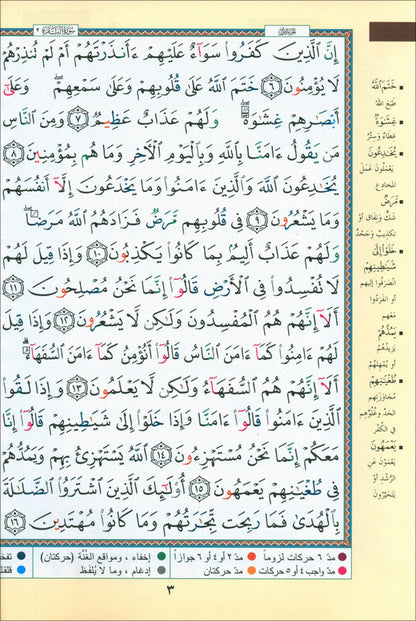 سُورَةُ البَقَرَة ٢
الجزء الأول
إِنَّ الَّذِينَ كَفَرُوا سَوَاءٌ عَلَيْهِمْ ءَأَنذَرْتَهُمْ أَمْ لَمْ تُنذِرْهُمْ
لَا يُؤْمِنُونَ ﴿٦﴾ خَتَمَ اللَّهُ عَلَىٰ قُلُوبِهِمْ وَعَلَىٰ سَمْعِهِمْ ۖ وَعَلَىٰ
أَبْصَٰرِهِمْ غِشَٰوَةٌ ۖ وَلَهُمْ عَذَابٌ عَظِيمٌ ﴿٧﴾ وَمِنَ النَّاسِ
مَن يَقُولُ ءَامَنَّا بِاللَّهِ وَبِالْيَوْمِ الْءَاخِرِ وَمَا هُم بِمُؤْمِنِينَ ﴿٨﴾
يُخَٰدِعُونَ اللَّهَ وَالَّذِينَ ءَامَنُوا وَمَا يَخْدَعُونَ إِلَّا أَنفُسَهُمْ
وَمَا يَشْعُرُونَ ﴿٩﴾ فِي قُلُوبِهِم مَّرَضٌ فَزَادَهُمُ اللَّهُ مَرَضًا ۖ
وَلَهُمْ عَذَابٌ أَلِيمٌ بِمَا كَانُوا يَكْذِبُونَ ﴿١٠﴾ وَإِذَا قِيلَ لَهُمْ
لَا تُفْسِدُوا فِي الْأَرْضِ قَالُوا إِنَّمَا نَحْنُ مُصْلِحُونَ ﴿١١﴾
أَلَا إِنَّهُمْ هُمُ الْمُفْسِدُونَ وَلَٰكِن لَّا يَشْعُرُونَ ﴿١٢﴾ وَإِذَا قِيلَ
لَهُمْ ءَامِنُوا كَمَا ءَامَنَ النَّاسُ قَالُوا أَنُؤْمِنُ كَمَا ءَامَنَ السُّفَهَاءُ ۗ
أَلَا إِنَّهُمْ هُمُ السُّفَهَاءُ وَلَٰكِن لَّا يَعْلَمُونَ ﴿١٣﴾ وَإِذَا لَقُوا
الَّذِينَ ءَامَنُوا قَالُوا ءَامَنَّا وَإِذَا خَلَوْا إِلَىٰ شَيَٰطِينِهِمْ قَالُوا إِنَّا
مَعَكُمْ إِنَّمَا نَحْنُ مُسْتَهْزِءُونَ ﴿١٤﴾ اللَّهُ يَسْتَهْزِئُ بِهِمْ وَيَمُدُّهُمْ
فِي طُغْيَٰنِهِمْ يَعْمَهُونَ ﴿١٥﴾ أُولَٰئِكَ الَّذِينَ اشْتَرَوُا الضَّلَٰلَةَ
بِالْهُدَىٰ فَمَا رَبِحَت تِّجَٰرَتُهُمْ وَمَا كَانُوا مُهْتَدِينَ ﴿١٦﴾
خَتَمَ اللَّهُ
طَبَعَ اللهُ
غِشَٰوَةٌ
غِطَاءٌ وَسِتْرٌ
يُخَٰدِعُونَ
يَعْمَلُونَ عَمَلَ
المخادع
مَرَضٌ
شَكٌّ وَنِفَاقٌ أو
تكذيبٌ وَجَحْدٌ
خَلَوْا إِلَىٰ
شَيَٰطِينِهِمْ
انْصَرَفُوا إليهم
أو انفَرَدُوا
مَعَهم
يَمُدُّهُمْ
يَزيدُهُمْ
أو يُمْهِلُهُمْ
طُغْيَٰنِهِمْ
مُجَاوَزَتِهِم
الحَدَّ وَغُلُوِّهِم
في الكُفْرِ
يَعْمَهُونَ
يَعْمَوْنَ عَنِ
الرُّشْدِ أَوْ
يَتَحَيَّرُونَ
مدّ ٦ حركات لزوماً
مدّ ٢ أو ٤ أو ٦ جوازاً
إخفاء ، ومواقع الغُنَّة (حركتان)
تفخ
مدّ واجب ٤ أو ٥ حركات
مدّ حركتان
إدغام ، وما لا يُلفَظ
قلقل
٣